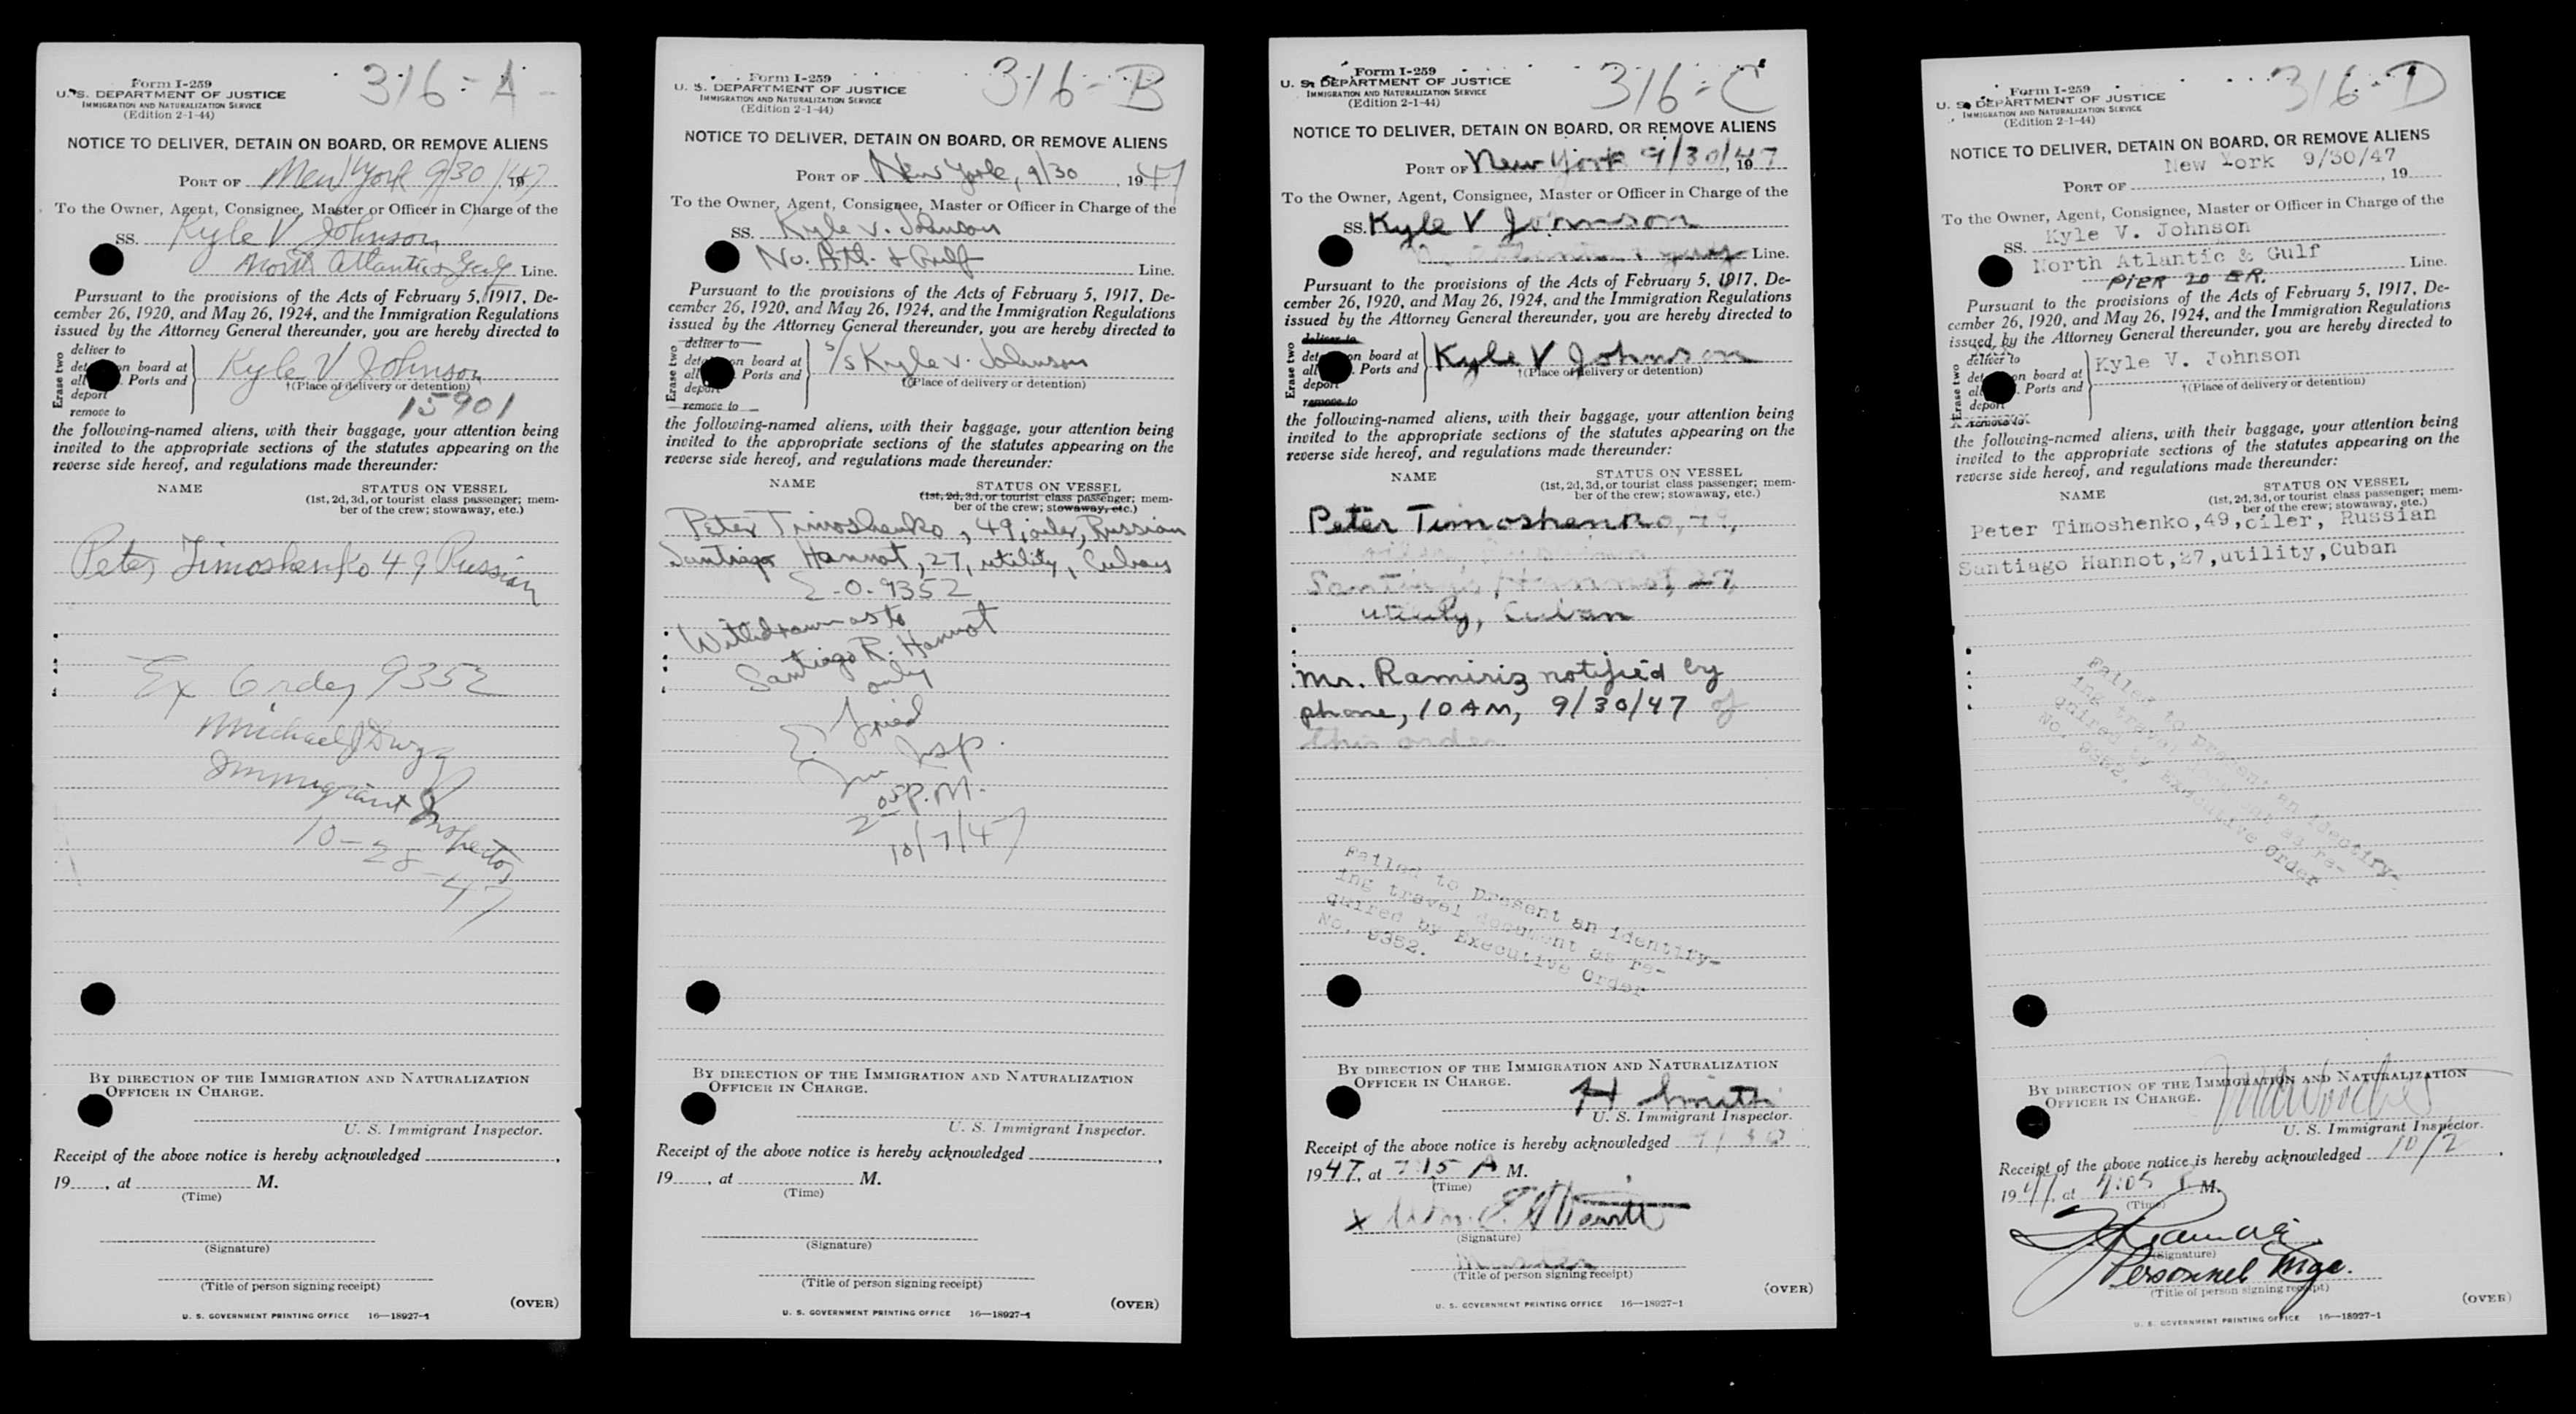 316-A
Form I-259
U. S. DEPARTMENT OF JUSTICE
IMMIGRATION AND NATURALIZATION SERVICE
(Edition 2-1-44)
NOTICE TO DELIVER, DETAIN ON BOARD, OR REMOVE ALIENS
PORT OF New York 9/30/1947
To the Owner, Agent, Consignee, Master or Officer in Charge of the
SS. Kyle V Johnson
North Atlantic & Gulf Line.
Pursuant to the provisions of the Acts of February 5, 1917, De-
cember 26, 1920, and May 26, 1924, and the Immigration Regulations
issued by the Attorney General thereunder, you are hereby directed to
Erase two
deliver to
on board at
Ports and
deport
remove to
Kyle V Johnson
†(Place of delivery or detention)
15901
the following-named aliens, with their baggage, your attention being
invited to the appropriate sections of the statutes appearing on the
reverse side hereof, and regulations made thereunder:
NAME STATUS ON VESSEL
(1st, 2d, 3d, or tourist class passenger; mem-
ber of the crew; stowaway, etc.)
Peter Timoshenko 49 Russian
Ex Order 9352
Michael J
Immigrant Inspector
10-28-47
BY DIRECTION OF THE IMMIGRATION AND NATURALIZATION
OFFICER IN CHARGE.
U. S. Immigrant Inspector.
Receipt of the above notice is hereby acknowledged ,
19 , at M.
(Time)
(Signature)
(Title of person signing receipt)
(OVER)
U. S. GOVERNMENT PRINTING OFFICE 16—18927-1
316-B
Form I-259
U. S. DEPARTMENT OF JUSTICE
IMMIGRATION AND NATURALIZATION SERVICE
(Edition 2-1-44)
NOTICE TO DELIVER, DETAIN ON BOARD, OR REMOVE ALIENS
PORT OF New York, 9/30, 1947
To the Owner, Agent, Consignee, Master or Officer in Charge of the
SS. Kyle V. Johnson
No. Atl. & Gulf Line.
Pursuant to the provisions of the Acts of February 5, 1917, De-
cember 26, 1920, and May 26, 1924, and the Immigration Regulations
issued by the Attorney General thereunder, you are hereby directed to
Erase two
deliver to
on board at
Ports and
deport
remove to
S/S Kyle V. Johnson
(Place of delivery or detention)
the following-named aliens, with their baggage, your attention being
invited to the appropriate sections of the statutes appearing on the
reverse side hereof, and regulations made thereunder:
NAME STATUS ON VESSEL
(1st, 2d, 3d, or tourist class passenger; mem-
ber of the crew; stowaway, etc.)
Peter Timoshenko, 49, oiler, Russian
Santiago Hannot, 27, utility, Cuban
E.O. 9352
Withdrawn as to
Santiago R. Hannot
only
E. Fried
Imm Insp.
2 05 P.M.
10/7/47
BY DIRECTION OF THE IMMIGRATION AND NATURALIZATION
OFFICER IN CHARGE.
U. S. Immigrant Inspector.
Receipt of the above notice is hereby acknowledged ,
19 , at M.
(Time)
(Signature)
(Title of person signing receipt)
(OVER)
U. S. GOVERNMENT PRINTING OFFICE 16—18927-1
316-C
Form I-259
U. S. DEPARTMENT OF JUSTICE
IMMIGRATION AND NATURALIZATION SERVICE
(Edition 2-1-44)
NOTICE TO DELIVER, DETAIN ON BOARD, OR REMOVE ALIENS
PORT OF New York 9/30/47, 19
To the Owner, Agent, Consignee, Master or Officer in Charge of the
SS. Kyle V Johnson
Line.
Pursuant to the provisions of the Acts of February 5, 1917, De-
cember 26, 1920, and May 26, 1924, and the Immigration Regulations
issued by the Attorney General thereunder, you are hereby directed to
Erase two
deliver to
on board at
Ports and
deport
remove to
Kyle V Johnson
†(Place of delivery or detention)
the following-named aliens, with their baggage, your attention being
invited to the appropriate sections of the statutes appearing on the
reverse side hereof, and regulations made thereunder:
NAME STATUS ON VESSEL
(1st, 2d, 3d, or tourist class passenger; mem-
ber of the crew; stowaway, etc.)
Peter Timoshenko, 49,
Santiago Hannot, 27
utility, Cuban
Mr. Ramiriz notified by
phone, 10 AM, 9/30/47 of
this order
Failed to present an identify-
ing travel document as re-
quired by Executive Order
No. 9352.
BY DIRECTION OF THE IMMIGRATION AND NATURALIZATION
OFFICER IN CHARGE.
H Smith
U. S. Immigrant Inspector.
Receipt of the above notice is hereby acknowledged 9/30
1947, at 7:15 A M.
(Time)
x Wm.
(Signature)
Master
(Title of person signing receipt)
(OVER)
U. S. GOVERNMENT PRINTING OFFICE 16—18927-1
316-D
Form I-259
U. S. DEPARTMENT OF JUSTICE
IMMIGRATION AND NATURALIZATION SERVICE
(Edition 2-1-44)
NOTICE TO DELIVER, DETAIN ON BOARD, OR REMOVE ALIENS
New York 9/30/47
PORT OF , 19
To the Owner, Agent, Consignee, Master or Officer in Charge of the
SS. Kyle V. Johnson
North Atlantic & Gulf Line.
PIER 20 ER.
Pursuant to the provisions of the Acts of February 5, 1917, De-
cember 26, 1920, and May 26, 1924, and the Immigration Regulations
issued by the Attorney General thereunder, you are hereby directed to
Erase two
deliver to
on board at
Ports and
deport
remove to
Kyle V. Johnson
†(Place of delivery or detention)
the following-named aliens, with their baggage, your attention being
invited to the appropriate sections of the statutes appearing on the
reverse side hereof, and regulations made thereunder:
NAME STATUS ON VESSEL
(1st, 2d, 3d, or tourist class passenger; mem-
ber of the crew; stowaway, etc.)
Peter Timoshenko,49,oiler, Russian
Santiago Hannot,27,utility,Cuban
Failed to present an identify-
ing travel document as re-
quired by Executive Order
No. 9352.
BY DIRECTION OF THE IMMIGRATION AND NATURALIZATION
OFFICER IN CHARGE.
U. S. Immigrant Inspector.
Receipt of the above notice is hereby acknowledged 10/2,
1947, at 4:05 P M.
(Time)
(Signature)
Personnel Mgr.
(Title of person signing receipt)
(OVER)
U. S. GOVERNMENT PRINTING OFFICE 16—18927-1